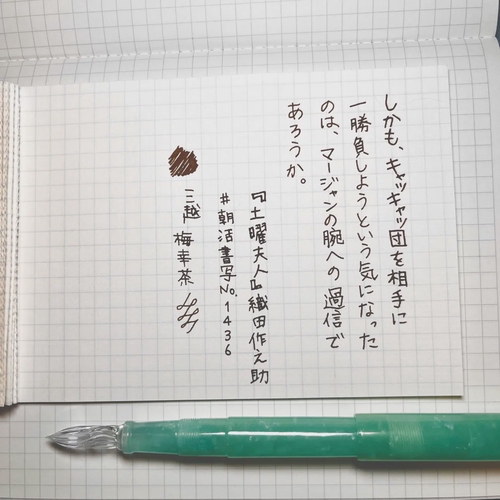 しかも、キャッキャッ団を相手に
一勝負しようという気になった
のは、マージャンの腕への過信で
あろうか。
『土曜夫人』織田作之助
#朝活書写No.1436
三越 梅幸茶